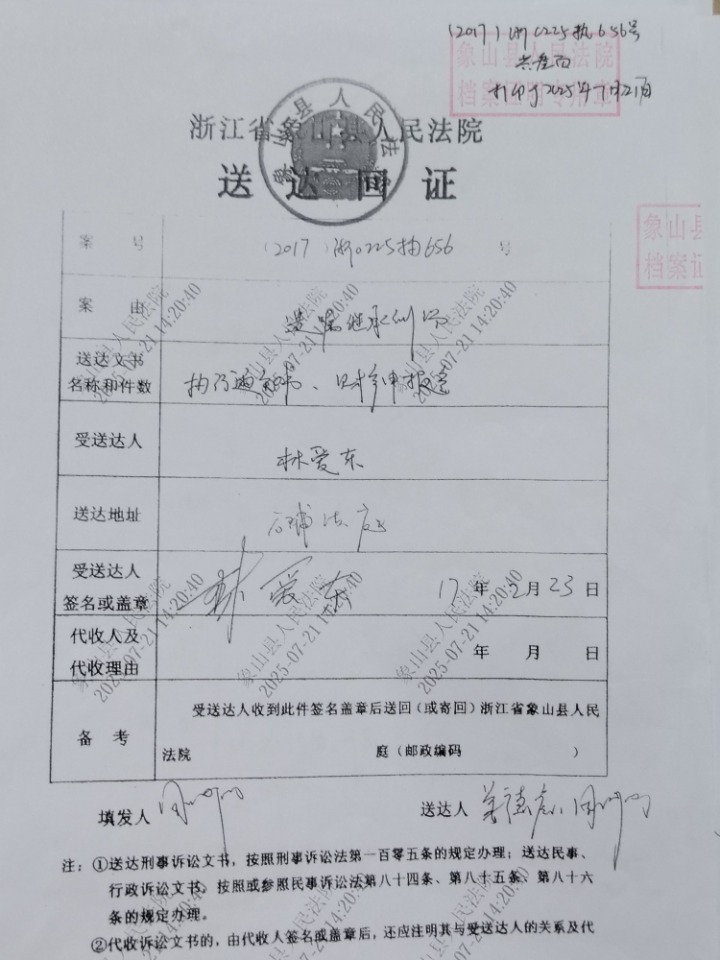 (2017)浙0225执656号
共壹页
打印于2025年7月21日
象山县人民法院
档案证明专用章
浙江省象山县人民法院
送达回证
案 号 (2017)浙0225执656 号
象山县
档案证
案 由 继承纠纷
送达文书
名称和件数 执行通知书、财产申报表
受送达人 林爱东
送达地址 石浦法庭
受送达人
签名或盖章 林爱东 17年2月23日
代收人及
代收理由 年 月 日
备 考
受送达人收到此件签名盖章后送回(或寄回)浙江省象山县人民
法院 庭(邮政编码 )
填发人 送达人
注:①送达刑事诉讼文书,按照刑事诉讼法第一百零五条的规定办理;送达民事、
行政诉讼文书,按照或参照民事诉讼法第八十四条、第八十五条、第八十六
条的规定办理。
②代收诉讼文书的,由代收人签名或盖章后,还应注明其与受送达人的关系及代
象山县人民法院
2025-07-21 14:20:40